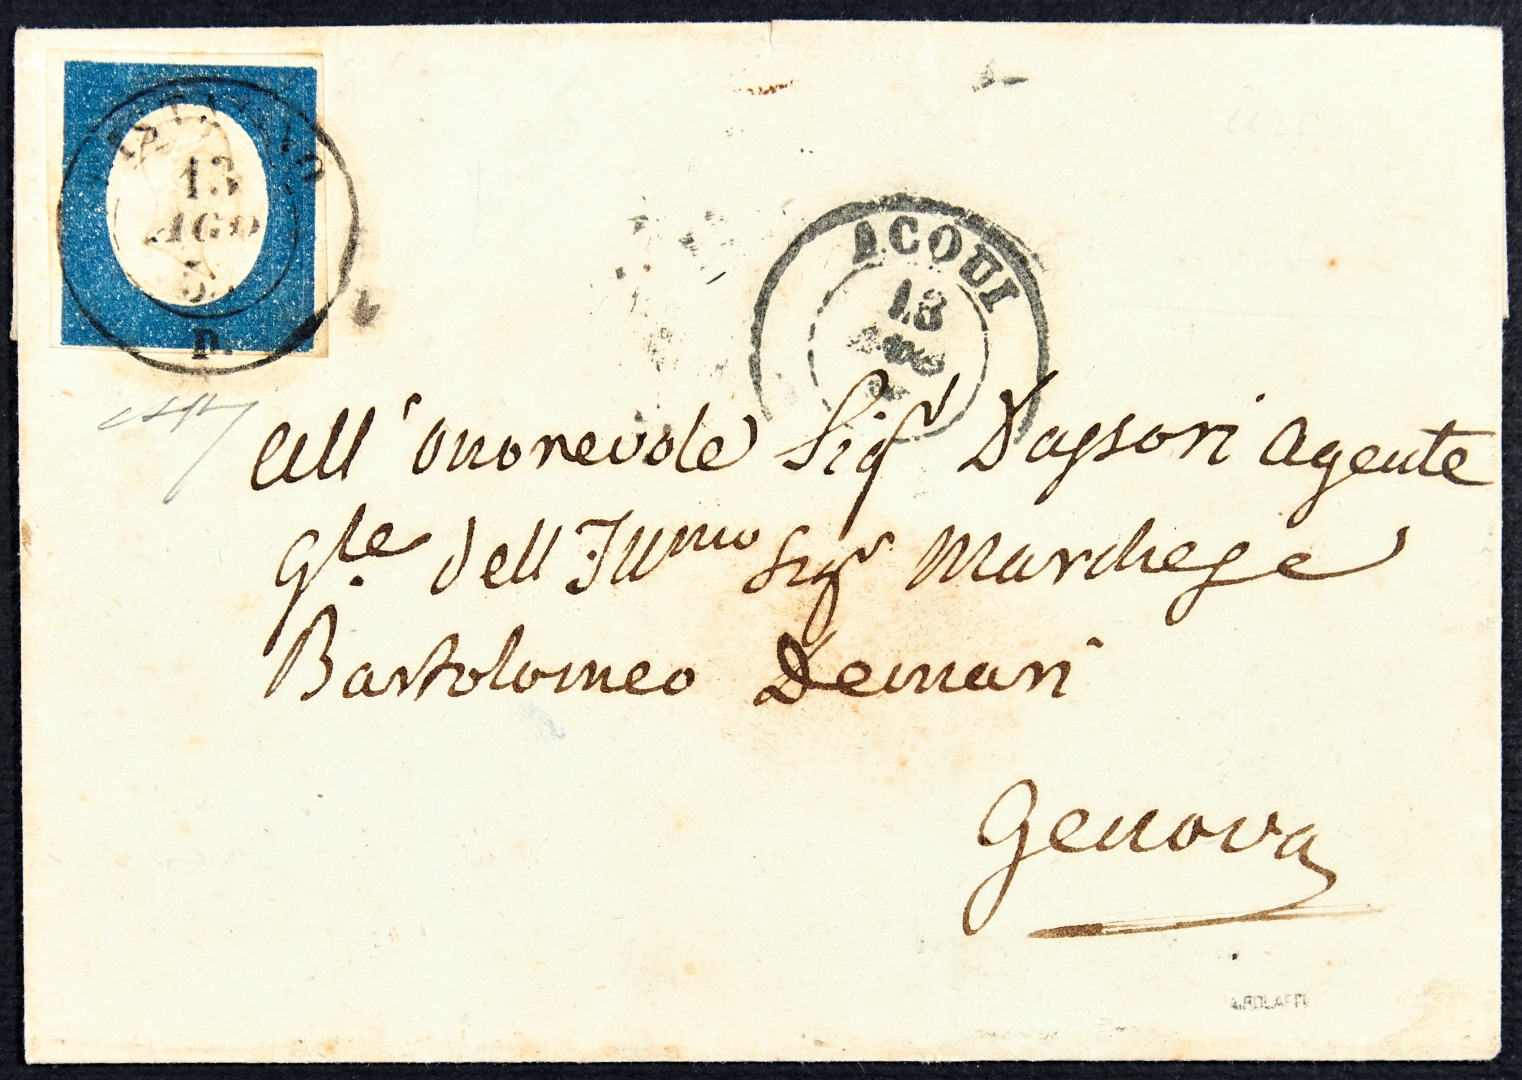 13
AGO
5
D.
ACOUI
13
AGO
All'onorevole Sigr Dassori Agente
Gle dell Illmo Sigr Marchese
Bartolomeo Demari
Genova
A.BOLAFFI